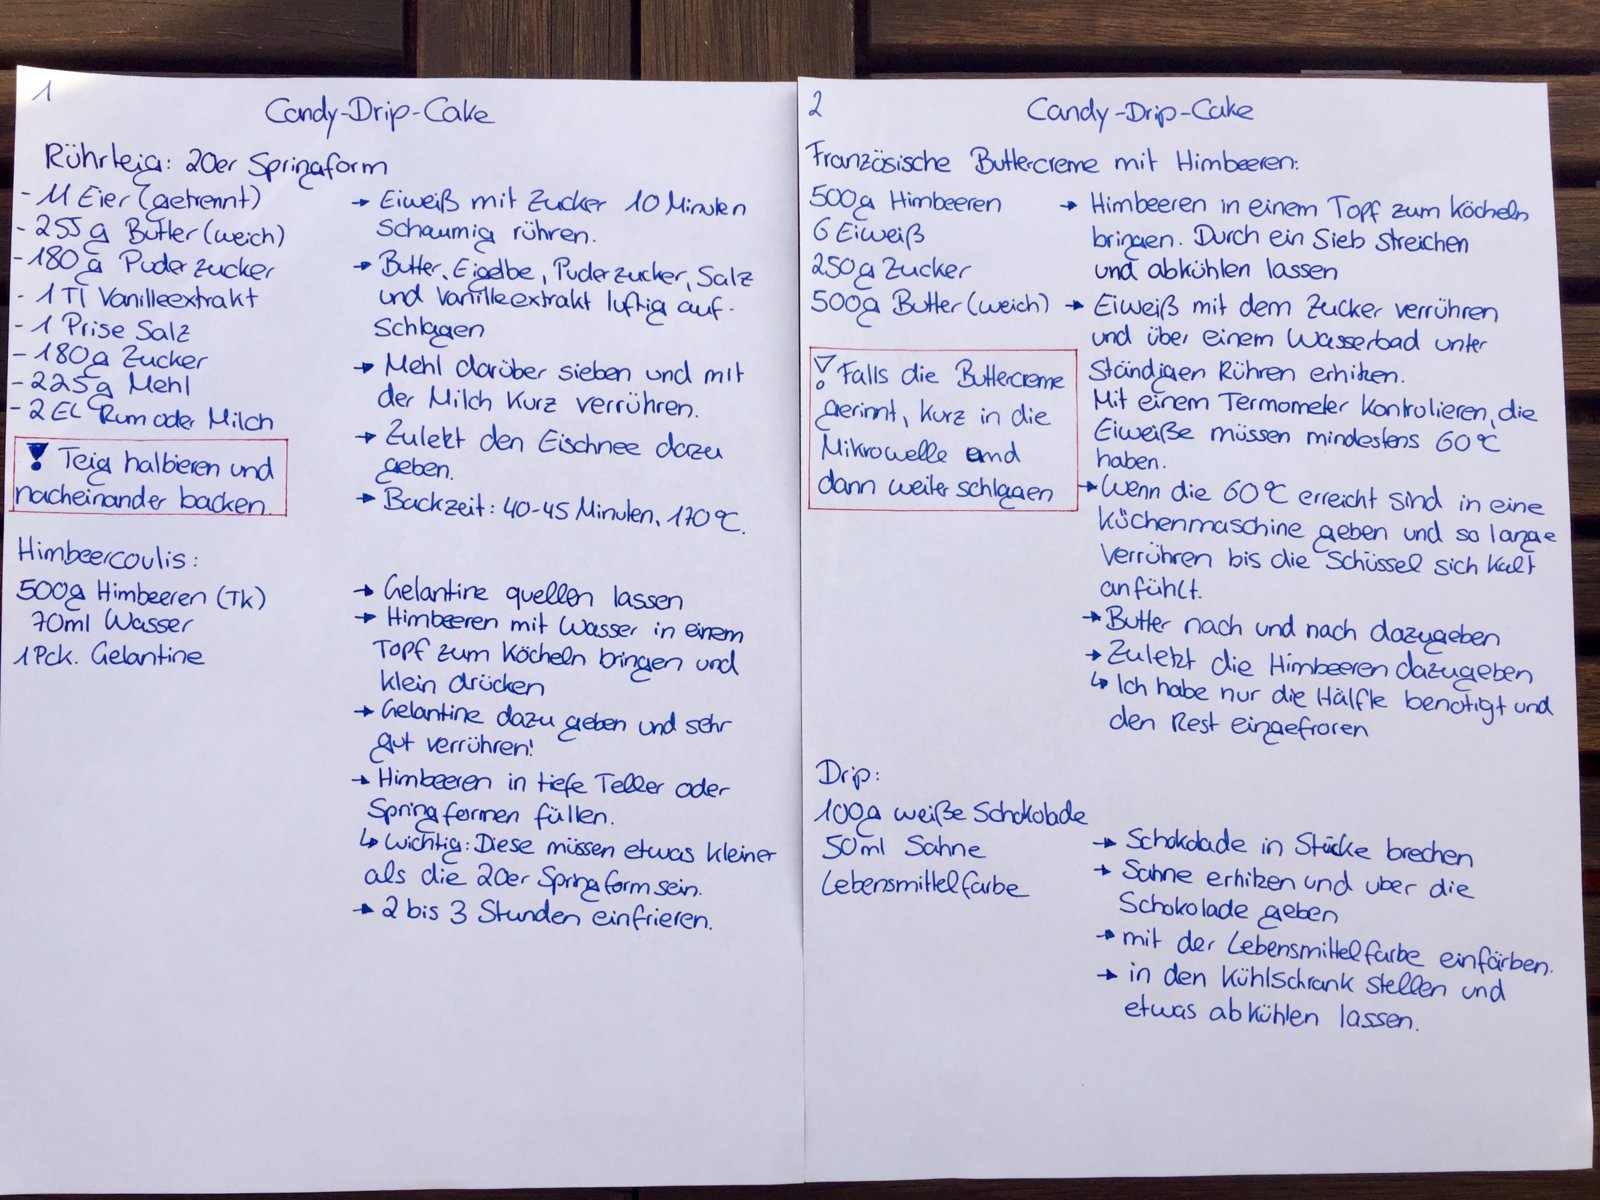 1
Candy-Drip-Cake
Rührteig: 20er Springform
- 11 Eier (getrennt)
- 255 g Butter (weich)
- 180g Puderzucker
- 1 Tl Vanilleextrakt
- 1 Prise Salz
- 180g Zucker
- 225g Mehl
- 2 EL Rum oder Milch
! Teig halbieren und
nacheinander backen.
→ Eiweiß mit Zucker 10 Minuten
schaumig rühren.
→ Butter, Eigelbe, Puderzucker, Salz
und Vanilleextrakt luftig auf-
schlagen
→ Mehl darüber sieben und mit
der Milch kurz verrühren.
→ Zuletzt den Eischnee dazu
geben.
→ Backzeit: 40-45 Minuten, 170°C.
Himbeercoulis:
500g Himbeeren (TK)
70ml Wasser
1 Pck. Gelantine
→ Gelantine quellen lassen
→ Himbeeren mit Wasser in einem
Topf zum Köcheln bringen und
klein drücken
→ Gelantine dazu geben und sehr
gut verrühren!
→ Himbeeren in tiefe Teller oder
Springformen füllen.
↳ Wichtig: Diese müssen etwas kleiner
als die 20er Springform sein.
→ 2 bis 3 Stunden einfrieren.
2
Candy-Drip-Cake
Französische Buttercreme mit Himbeeren:
500g Himbeeren
6 Eiweiß
250g Zucker
500g Butter (weich)
! Falls die Buttercreme
gerinnt, kurz in die
Mikrowelle und
dann weiter schlagen
→ Himbeeren in einem Topf zum köcheln
bringen. Durch ein Sieb streichen
und abkühlen lassen
→ Eiweiß mit dem Zucker verrühren
und über einem Wasserbad unter
ständigen Rühren erhitzen.
Mit einem Termometer kontrolieren, die
Eiweiße müssen mindestens 60°C
haben.
→ Wenn die 60°C erreicht sind in eine
Küchenmaschine geben und so lange
verrühren bis die Schüssel sich kalt
anfühlt.
→ Butter nach und nach dazugeben
→ Zuletzt die Himbeeren dazugeben
↳ Ich habe nur die Hälfte benötigt und
den Rest eingefroren
Drip:
100g weiße Schokolade
50ml Sahne
Lebensmittelfarbe
→ Schokolade in Stücke brechen
→ Sahne erhitzen und uber die
Schokolade geben
→ mit der Lebensmittelfarbe einfärben.
→ in den Kühlschrank stellen und
etwas abkühlen lassen.